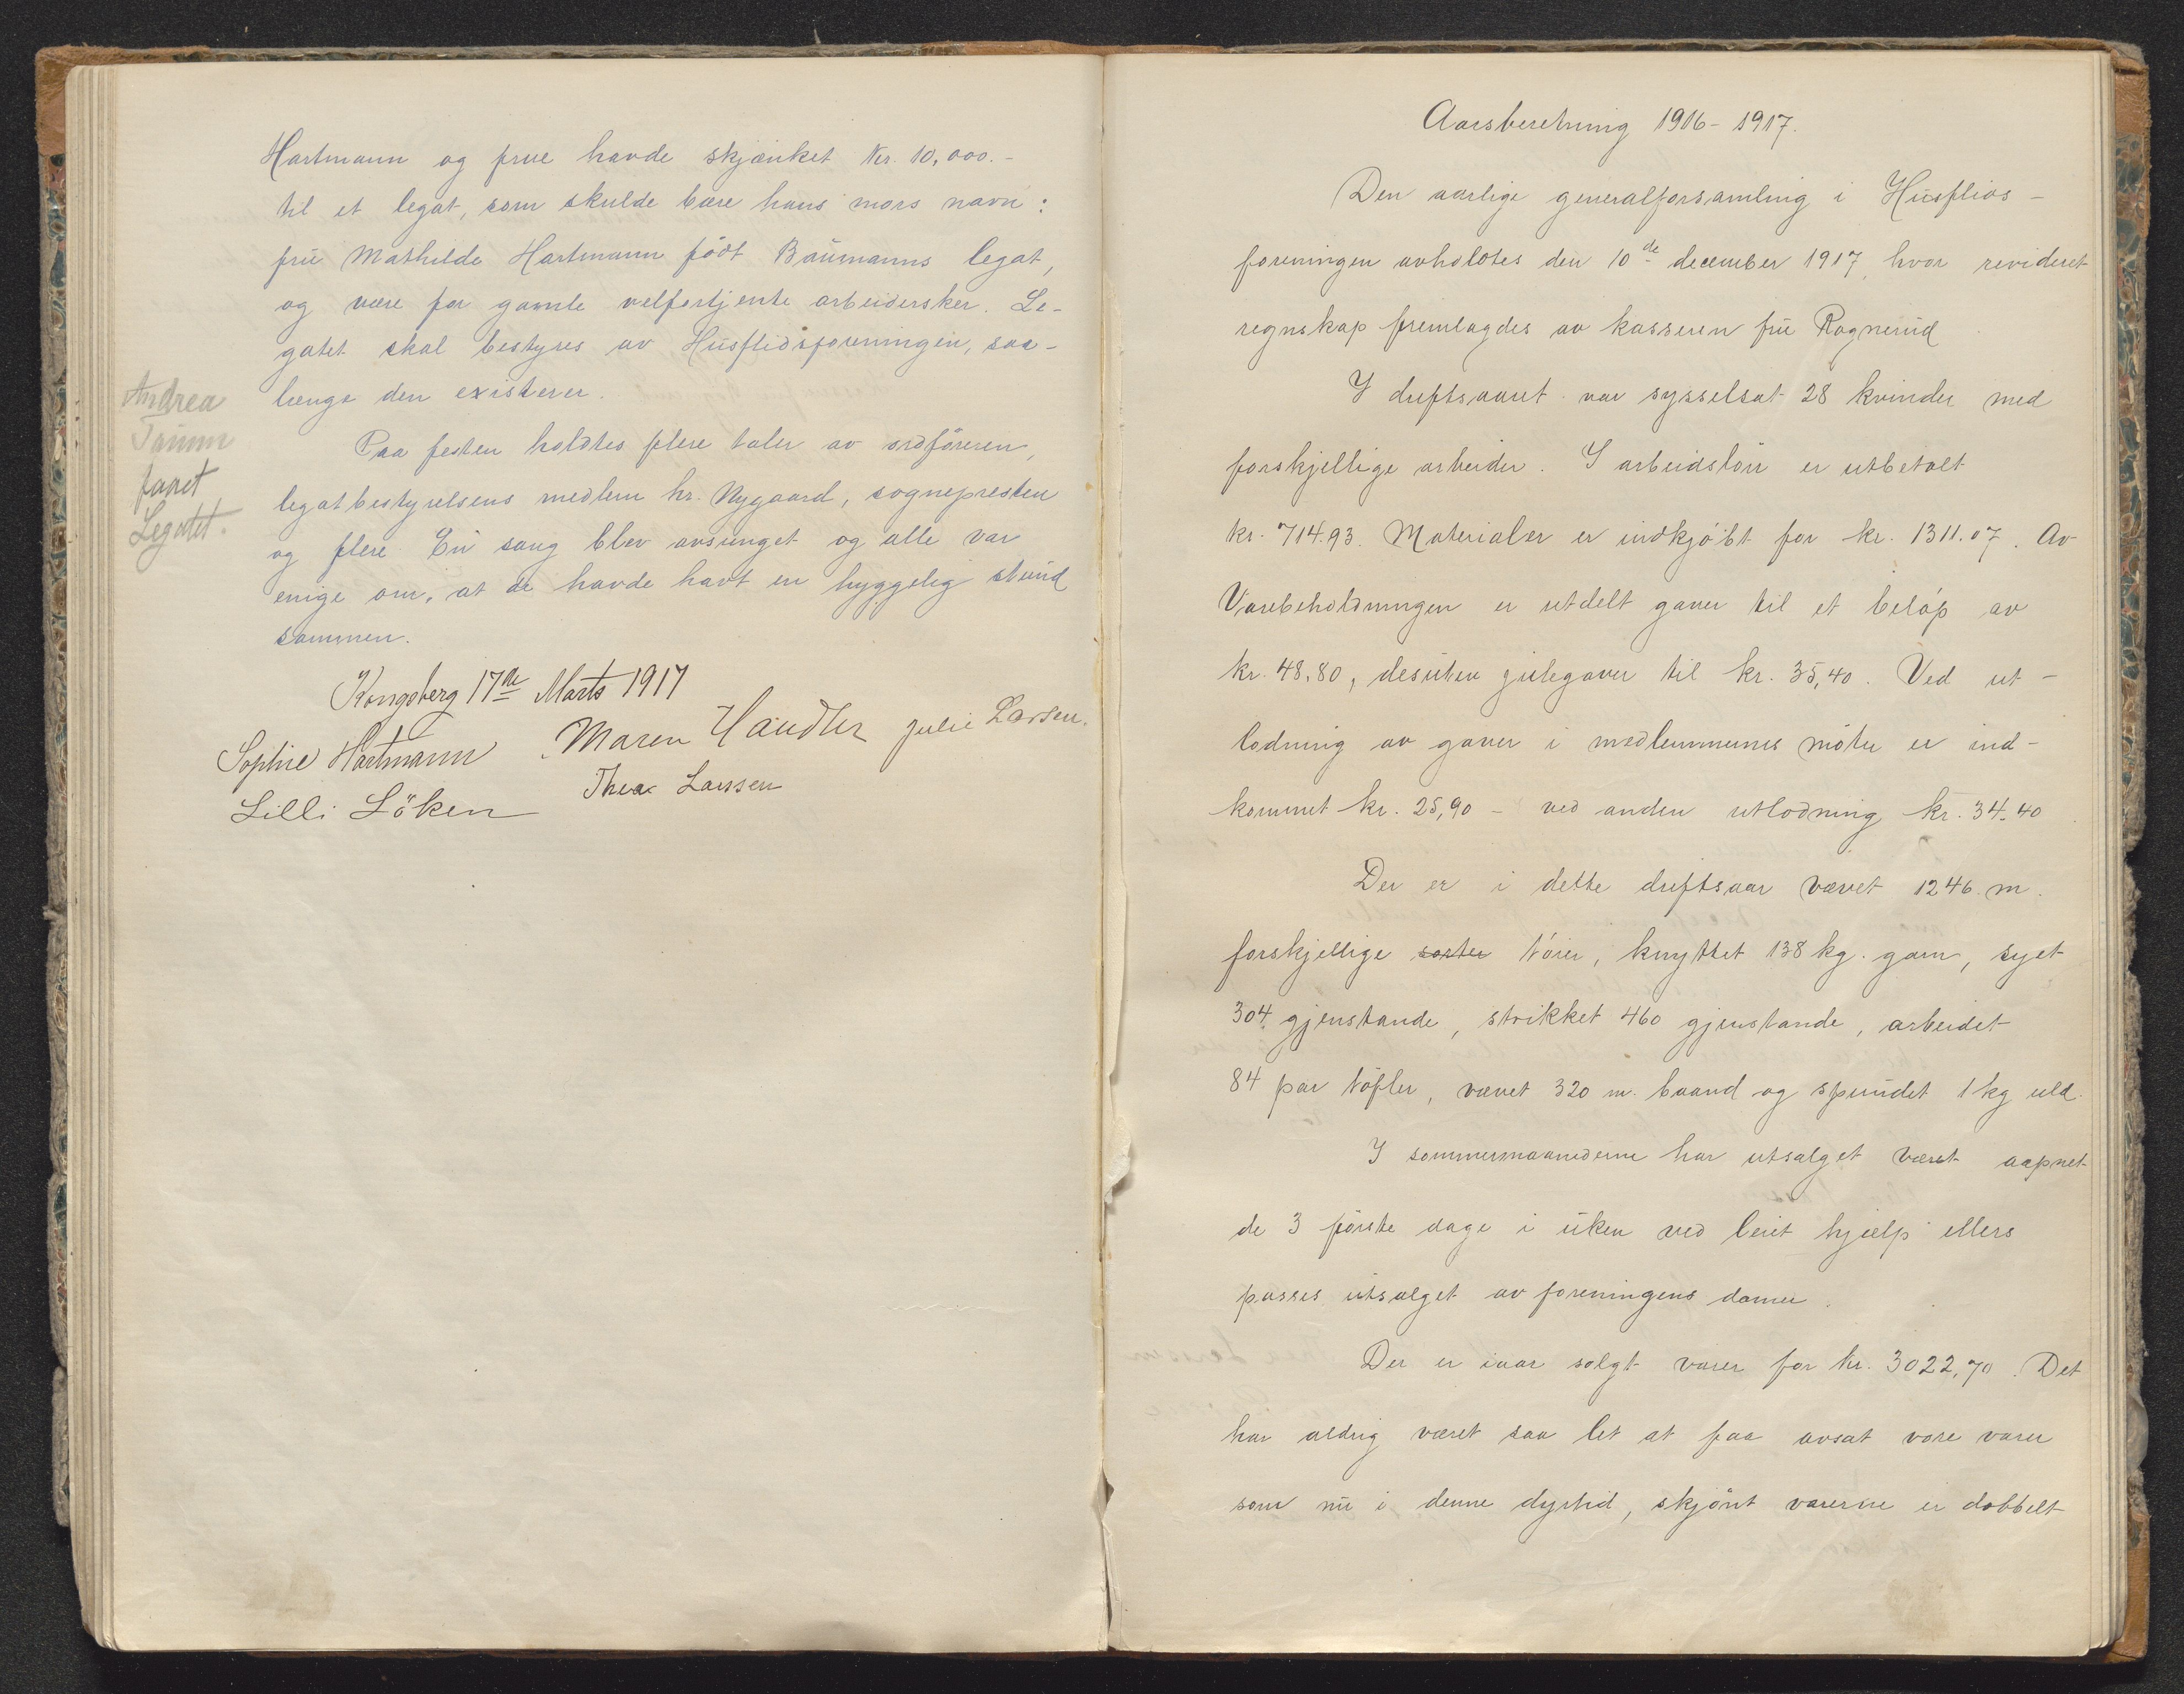 Hartmann og frue havde skjænket Kr. 10,000.-
til et legat, som skulde bære hans mors navn:
frü Mathilde Hartmann född Baumanns legat,
og være for gamle velfortjente arbeidersker. Le-
gatet skal bestyres av Hüsflidsforeningen, saa-
længe den existerer.
Andrea
Tamm
faaet
Legatet.
Paa festen holdtes flere taler av ordföreren,
legatbestyrelsens medlem hr. Nygaard, sognepresten
og flere. En sang blev avsunget og alle var
enige om, at de havde havt en hyggelig stund
sammen.
Kongsberg 17de Marts 1917
Sophie Hartmann Maren Händler Julie Larsen.
Lilli Löken Thea Larssen
Aarsberetning 1916-1917.
Den aarlige generalforsamling i Hüsflids-
foreningen avholdtes den 10de december 1917, hvor revideret
regnskap fremlagdes av kasseren frü Ragnerud
I driftsaaret var sysselsat 28 kvinder med
forskjellige arbeider. I arbeidslön er utbetalt
kr. 714.93. Materialer er indkjöbt for kr. 1311.07. Av
Varebeholdningen er utdelt gaver til et belöp av
kr. 48,80, desuten julegaver til kr. 35,40. Ved ut-
lodning av gaver i medlemmernes möter er ind-
kommet kr. 25,90 - ved anden utlodning kr. 34.40
Der er i dette driftsaar vævet 1246 m.
forskjellige sorter töier, knyttet 138 kg. garn, syet
304 gjenstande, strikket 460 gjenstande, arbeidet
84 par töfler, vævet 320 m. baand og spundet 1 kg uld.
I sommermaanederne har utsalget været aapnet
de 3 förste dage i üken ved leiet hjælp ellers
passes ütsalget av foreningens damer.
Der er iaar solgt varer for kr. 3022,70. Det
har aldrig været saa let at faa avsat vore varer
som nü i denne dyrtid, skjönt varerne er dobbelt